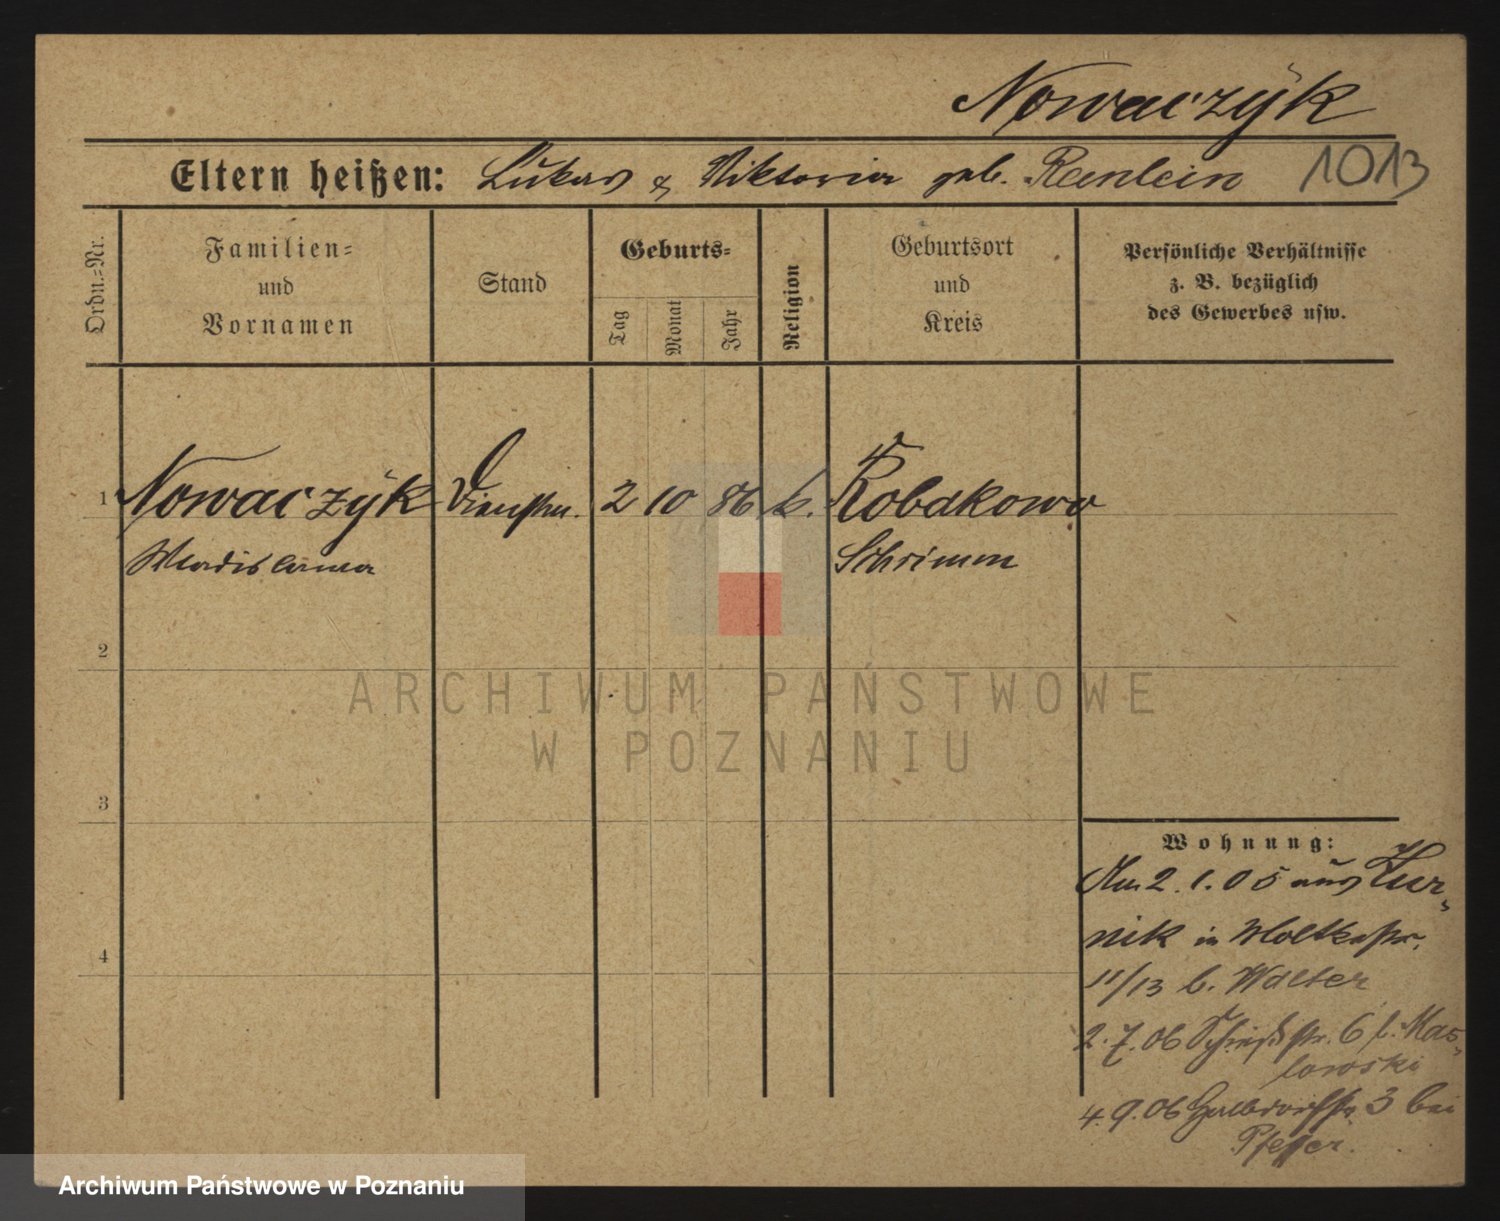 Nowaczÿk
Eltern heißen: Lukas & Viktoria geb. Renlein 1013
Ordn.=Nr.
Familien=
und
Vornamen
Stand
Geburts=
Tag
Monat
Jahr
Religion
Geburtsort
und
Kreis
Persönliche Verhältnisse
z. B. bezüglich
des Gewerbes usw.
1 Nowaczÿk Dienstm. 2 10 86 k. Robakowo
Wladislawa Schrimm
2
ARCHIWUM PAŃSTWOWE
W POZNANIU
3
Wohnung:
Am 2.1.05 aus Kur-
nik in Moltkestr.
4
11/13 b. Walter
2.7.06 6 b. Mas-
lowski
4.9.06 3 bei
Pfeffer.
Archiwum Państwowe w Poznaniu